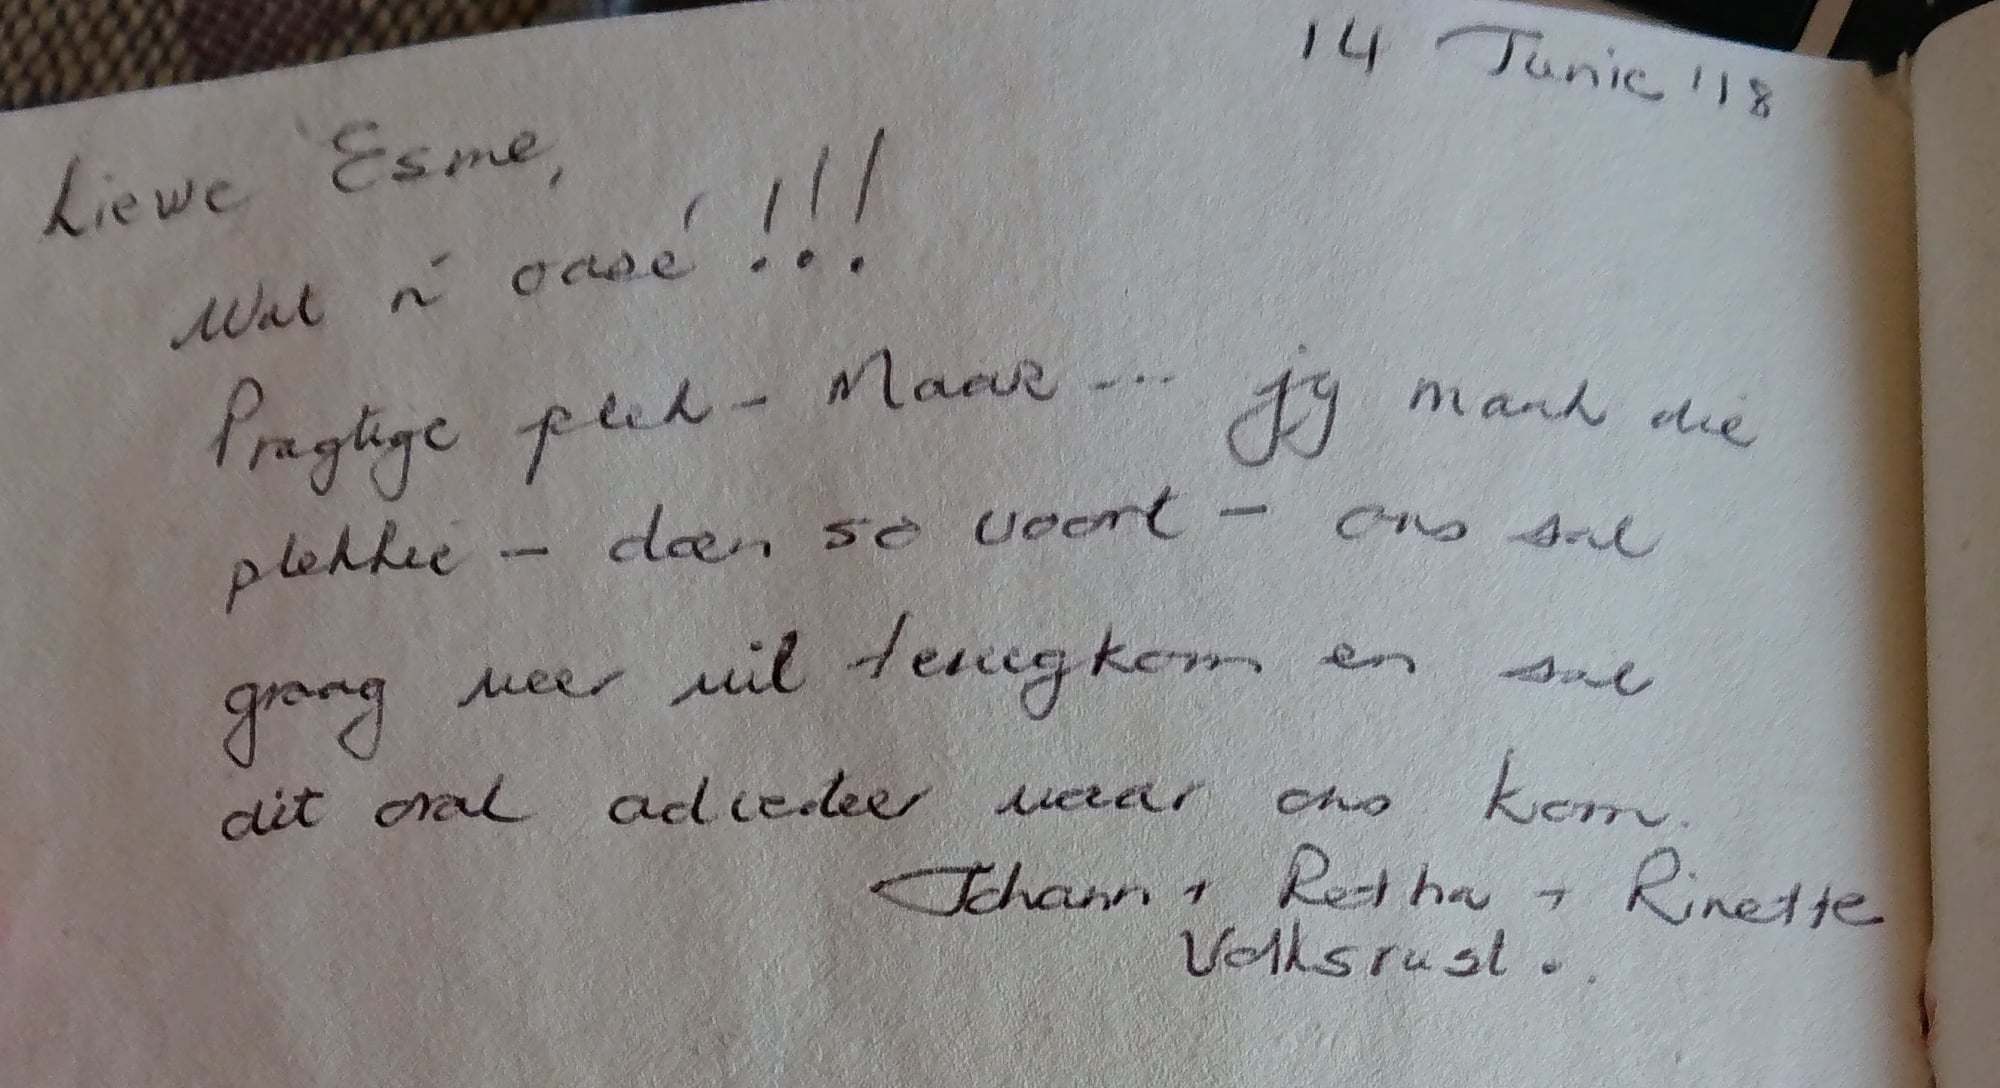 14 Junie '18
Liewe Esme,
Wat ń oasé!!!
Pragtige plek - Maar --- jy maak die
plekkie - doen so voort - ons sal
graag weer wil terugkom en sal
dit oral adverteer waar ons kom.
Johann + Retha + Rinette
Volksrust..